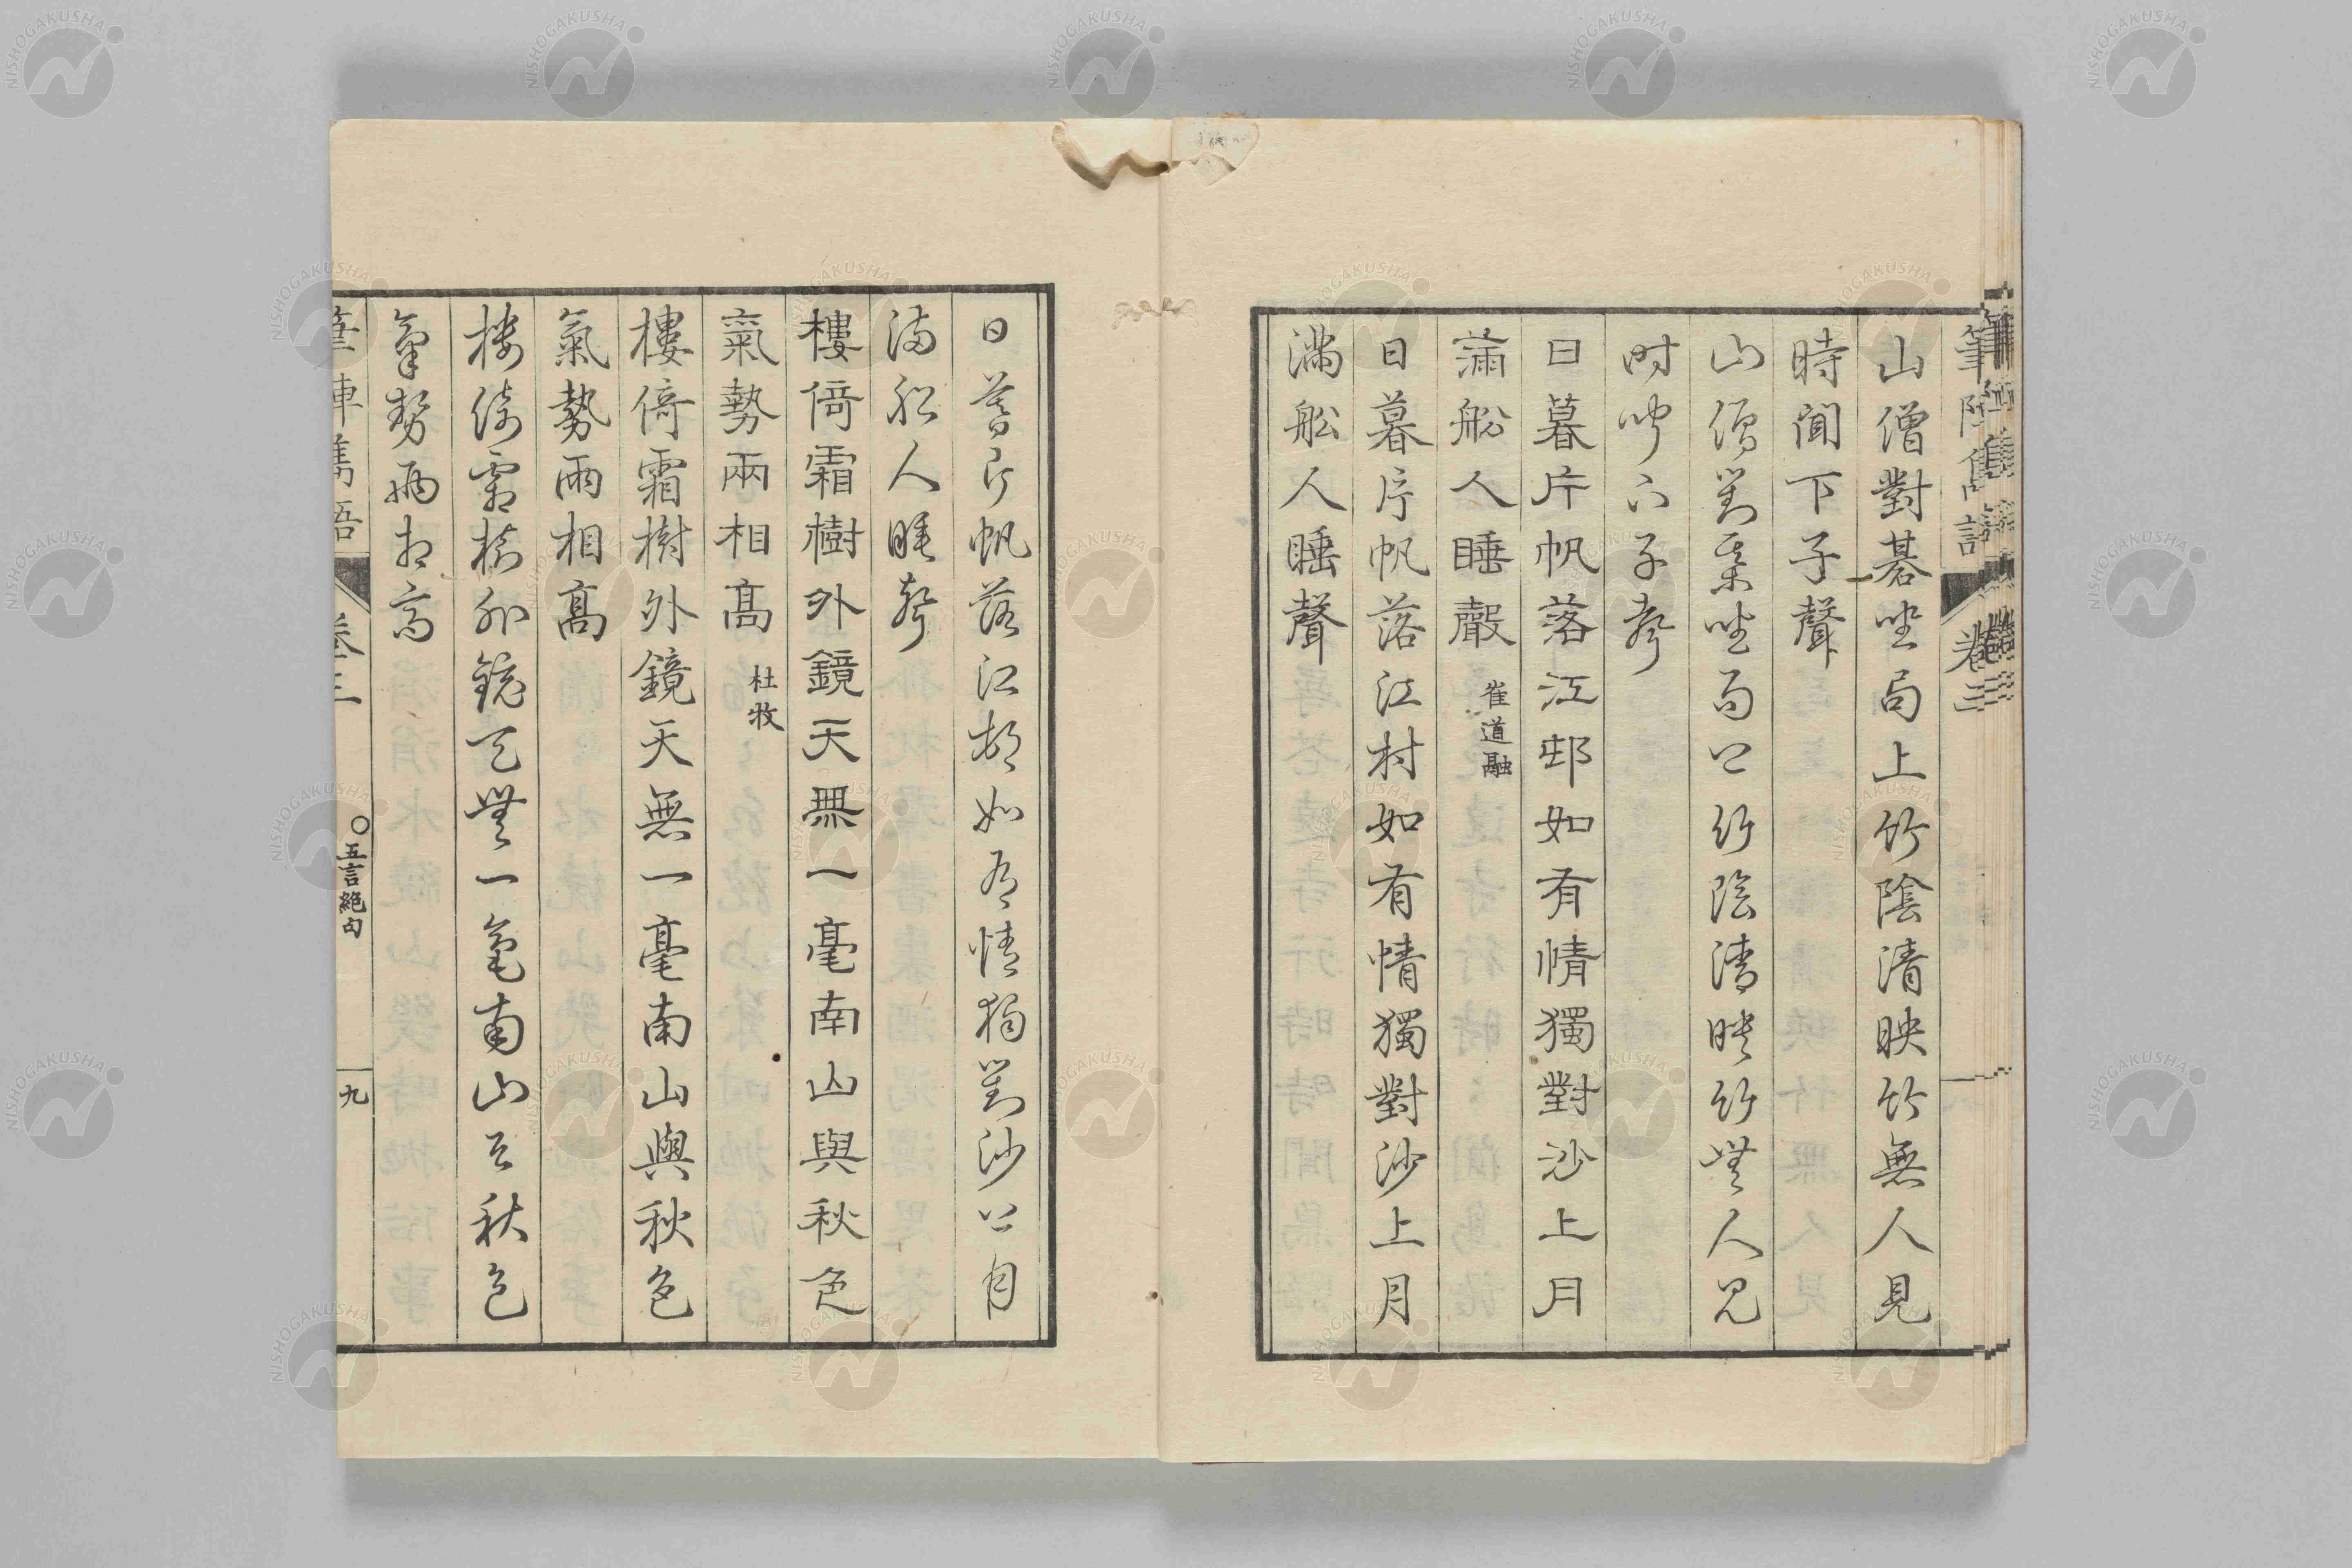 筆陣雋語
卷三
山僧對碁坐局上竹陰清映竹無人見
時聞下子聲
山僧對棊坐局上竹陰清映竹無人見
時聞下子聲
日暮片帆落江邨如有情獨對沙上月
滿船人睡聲
崔道融
日暮片帆落江村如有情獨對沙上月
滿船人睡聲
日暮片帆落江村如有情獨對沙上月
滿船人睡聲
樓倚霜樹外鏡天無一毫南山與秋色
氣勢兩相高
杜牧
樓倚霜樹外鏡天無一毫南山與秋色
氣勢兩相高
樓倚霜樹外鏡天無一毫南山與秋色
氣勢兩相高
筆陣雋語
卷三
○五言絕句
九
NISHOGAKUSHA